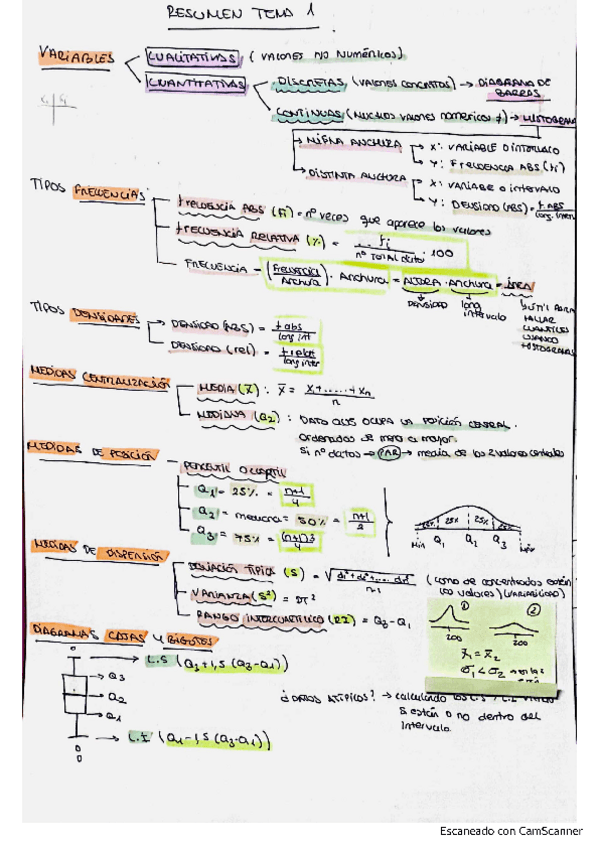 RESUMEN TEMA 1
VARIABLES
CUALITATIVAS (VALORES NO NUMÉRICOS)
CUANTITATIVAS
DISCRETAS (VALORES CONCRETOS) → DIAGRAMA DE BARRAS
CONTINUAS (MUCHOS VALORES NUMÉRICOS ≠) → HISTOGRAMA
MISMA ANCHURA
X: VARIABLE O INTERVALO
Y: FRECUENCIA ABS (fi)
DISTINTA ANCHURA
X: VARIABLE O INTERVALO
Y: DENSIDAD (ABS) = f ABS / long. inter
TIPOS FRECUENCIAS
FRECUENCIA ABS (Fi) = nº veces que aparece los valores
FRECUENCIA RELATIVA (%) = fi / nº TOTAL datos · 100
FRECUENCIA = (Frecuencia / Anchura) · Anchura = ALTURA · Anchura = ÁREA
DENSIDAD
long intervalo
ÚTIL PARA
HALLAR
CUANTILES
USANDO
HISTOGRAMAS
TIPOS DENSIDADES
DENSIDAD (ABS) = f abs / long int
DENSIDAD (rel) = f relat / long inter
MEDIDAS CENTRALIZACIÓN
MEDIA (x̄) : x̄ = x1 + ..... + xn / n
MEDIANA (Q2) : DATO QUE OCUPA LA POSICIÓN CENTRAL.
Ordenados de menor a mayor.
Si nº datos → PAR → media de los 2 valores centrales
MEDIDAS DE POSICIÓN
PERCENTIL O CUARTIL
Q1 = 25% = n+1 / 4
Q2 = mediana = 50% = n+1 / 2
Q3 = 75% = (n+1)3 / 4
25% 25% 25%
Min Q1 Q2 Q3 Max
MEDIDAS DE DISPERSIÓN
DESVIACIÓN TÍPICA (S) = √ d1² + d2² + ... dn² / n-1
(como de concentrados están los valores) (VARIABILIDAD)
VARIANZA (S²) = DT²
RANGO INTERCUARTÍLICO (RI) = Q3 - Q1
① ②
200 200
x̄1 = x̄2
σ1 < σ2
DIAGRAMAS CAJAS Y BIGOTES
L.S (Q3 + 1,5 (Q3 - Q1))
Q3
Q2
Q1
L.I (Q1 - 1,5 (Q3 - Q1))
¿DATOS ATÍPICOS? → calculando los L.S / L.I
Si están o no dentro del
Intervalo.
Escaneado con CamScanner